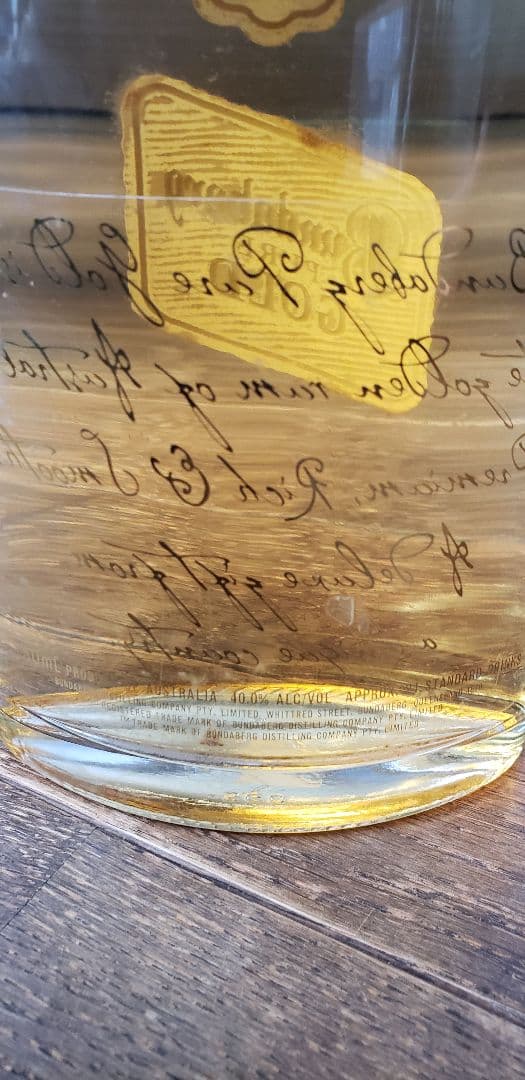 Bundaberg
PURE
GOLD
Bundaberg Pure Gold is
golden rum of Austral
Premium, Rich & Smooth
A deluxe gift from
a que country
AUSTRALIA 40.0% ALC/VOL APPROX. STANDARD DRINKS
DISTILLING COMPANY PTY. LIMITED, WHITTRED STREET, BUNDABERG QUEENSLAND
REGISTERED TRADE MARK OF BUNDABERG DISTILLING COMPANY PTY. LIMITED
TRADE MARK OF BUNDABERG DISTILLING COMPANY PTY. LIMITED